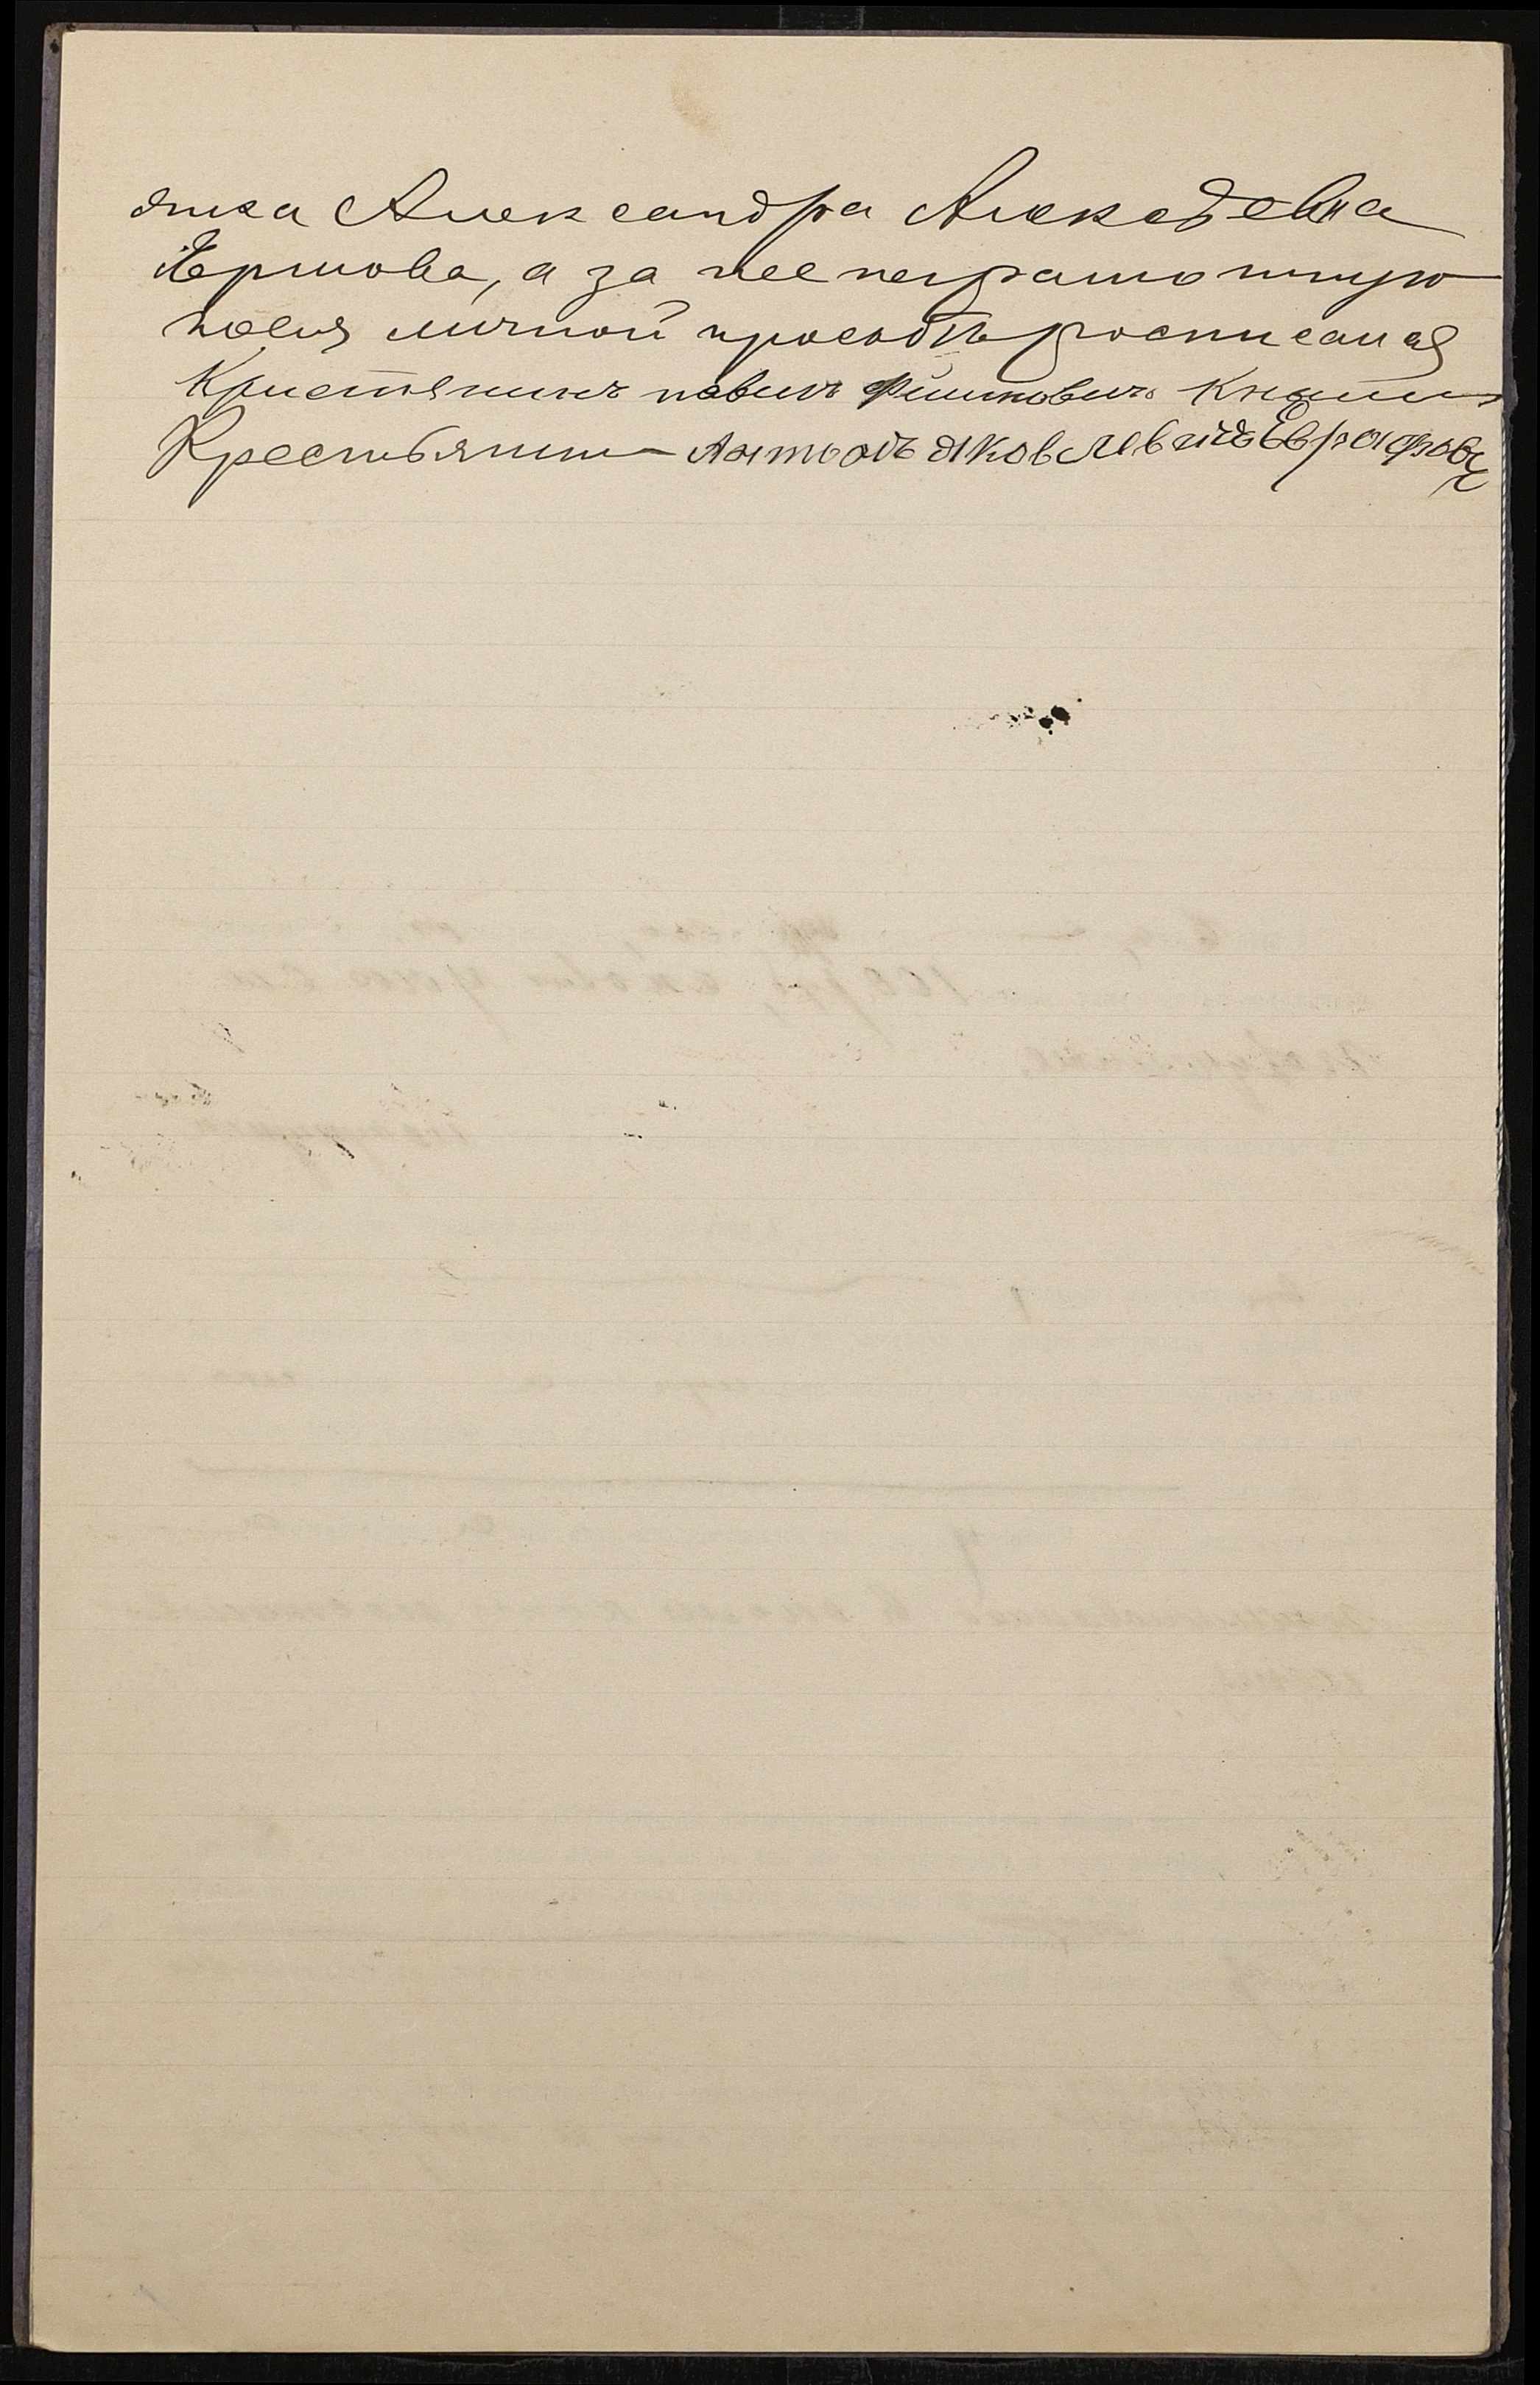 янка Александра Алексѣевна
Ершова, а за нее неграмотную
по ея личной просьбѣ росписался
Кристянинъ павелъ Филиповичъ
Крестьянин Антонъ яковлевичъ Евграфовъ